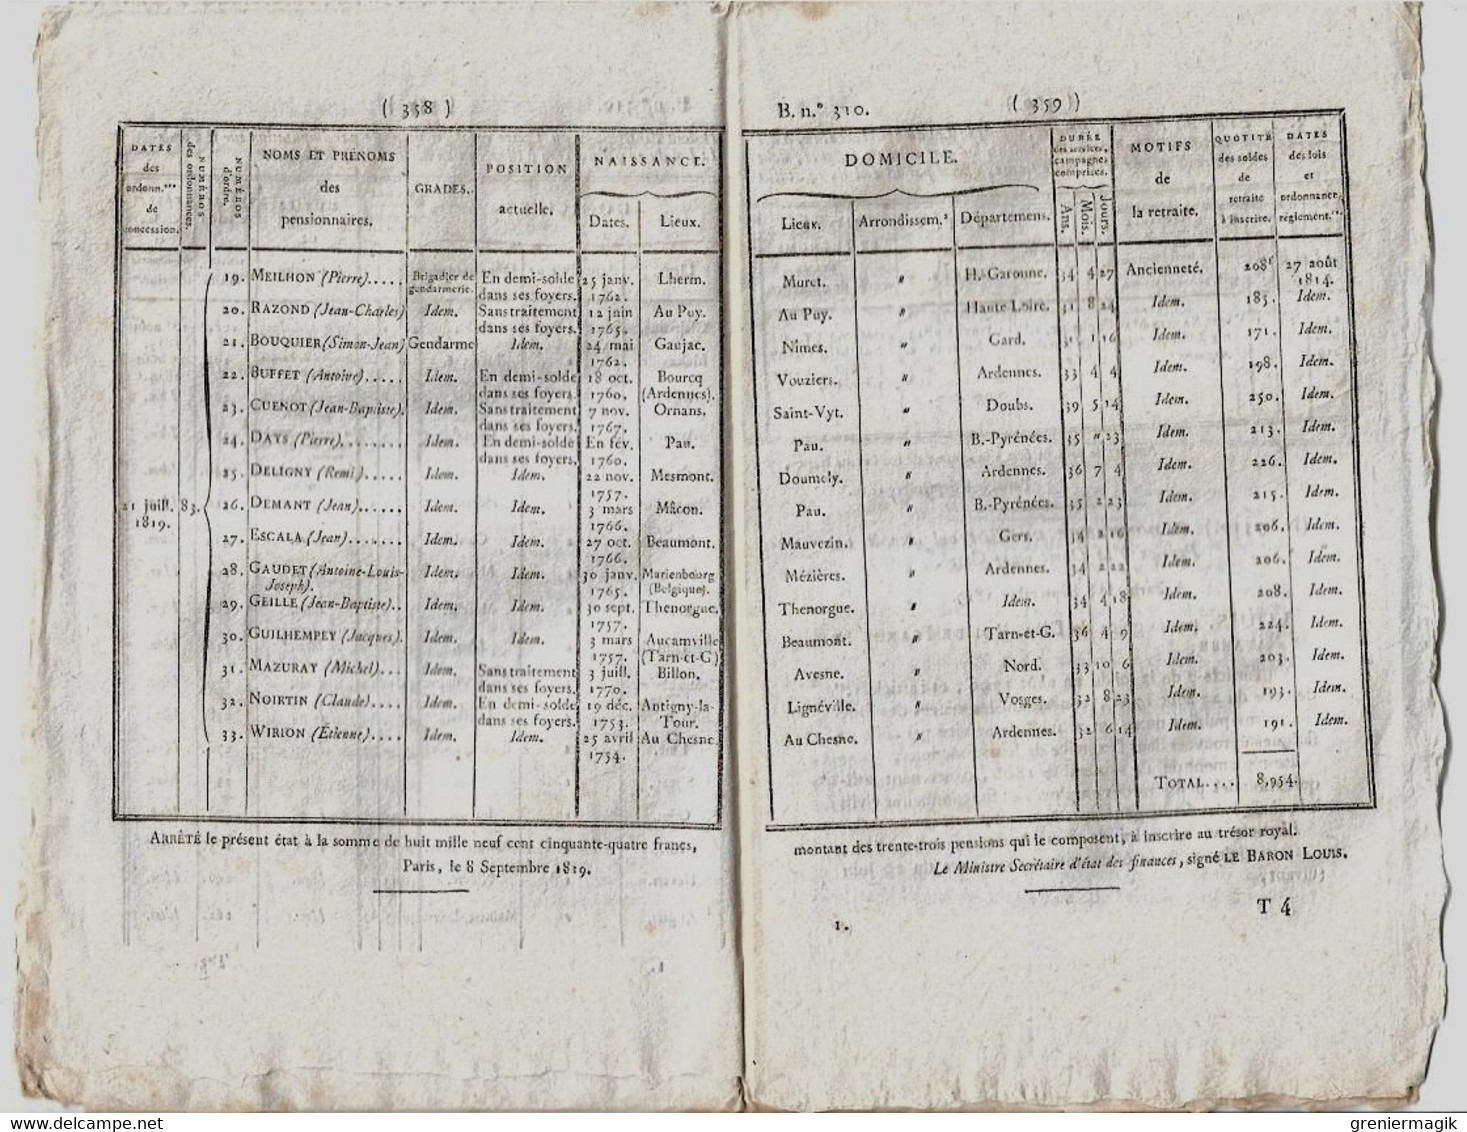 ( 358 )
DATES des ordonn.ces de concession.
NUMÉROS des ordonnances.
NUMÉROS d'ordre.
NOMS ET PRÉNOMS des pensionnaires.
GRADES.
POSITION actuelle.
NAISSANCE.
Dates.
Lieux.
21 juill. 1819.
83.
19. MEILHON (Pierre)..... Brigadier de gendarmerie. En demi-solde dans ses foyers. 25 janv. 1762. Lherm.
20. RAZOND (Jean-Charles) Idem. Sans traitement dans ses foyers. 12 juin 1765. Au Puy.
21. BOUQUIER (Simon-Jean) Gendarme Idem. 24 mai 1762. Gaujac.
22. BUFFET (Antoine)..... Idem. En demi-solde dans ses foyers. 18 oct. 1760. Bourcq (Ardennes).
23. CUENOT (Jean-Baptiste). Idem. Sans traitement dans ses foyers. 7 nov. 1767. Ornans.
24. DAYS (Pierre)........ Idem. En demi-solde dans ses foyers. En fév. 1760. Pau.
25. DELIGNY (Remi)..... Idem. Idem. 22 nov. 1757. Mesmont.
26. DEMANT (Jean)...... Idem. Idem. 3 mars 1766. Mâcon.
27. ESCALA (Jean)....... Idem. Idem. 27 oct. 1766. Beaumont.
28. GAUDET (Antoine-Louis-Joseph). Idem. Idem. 30 janv. 1765. Marienbourg (Belgique).
29. GEILLE (Jean-Baptiste).. Idem. Idem. 30 sept. 1757. Thenorgue.
30. GUILHEMPEY (Jacques). Idem. Idem. 3 mars 1757. Aucamville (Tarn-et-G)
31. MAZURAY (Michel)... Idem. Sans traitement dans ses foyers. 3 juill. 1770. Billon.
32. NOIRTIN (Claude).... Idem. En demi-solde dans ses foyers. 19 déc. 1753. Antigny-la-Tour.
33. WIRION (Étienne).... Idem. Idem. 25 avril 1754. Au Chesne.
ARRÊTÉ le présent état à la somme de huit mille neuf cent cinquante-quatre francs,
Paris, le 8 Septembre 1819.
B. n.° 310. ( 359 )
DOMICILE.
Lieux.
Arrondissem.s
Départemens.
DURÉE des services, campagnes comprises.
Ans.
Mois.
Jours.
MOTIFS de la retraite.
QUOTITÉ des soldes de retraite à inscrire.
DATES des lois et ordonnance, réglement.res
Muret. " H.-Garonne. 34 4 27 Ancienneté. 208f 27 août 1814.
Au Puy. " Haute Loire. 31 8 24 Idem. 185. Idem.
Nîmes. " Gard. 31 1 16 Idem. 171. Idem.
Vouziers. " Ardennes. 33 4 4 Idem. 198. Idem.
Saint-Vyt. " Doubs. 39 5 14 Idem. 250. Idem.
Pau. " B.-Pyrénées. 35 " 23 Idem. 213. Idem.
Doumely. " Ardennes. 36 7 4 Idem. 226. Idem.
Pau. " B.-Pyrénées. 35 2 23 Idem. 215. Idem.
Mauvezin. " Gers. 34 2 16 Idem. 206. Idem.
Mézières. " Ardennes. 34 2 22 Idem. 206. Idem.
Thenorgue. " Idem. 34 4 18 Idem. 208. Idem.
Beaumont. " Tarn-et-G. 36 4 9 Idem. 224. Idem.
Avesne. " Nord. 33 10 6 Idem. 203. Idem.
Lignéville. " Vosges. 32 8 23 Idem. 193. Idem.
Au Chesne. " Ardennes. 32 6 14 Idem. 191. Idem.
TOTAL.... 8,954.
montant des trente-trois pensions qui le composent, à inscrire au trésor royal.
Le Ministre Secrétaire d'état des finances, signé LE BARON LOUIS.
1.
T 4
greniermagik